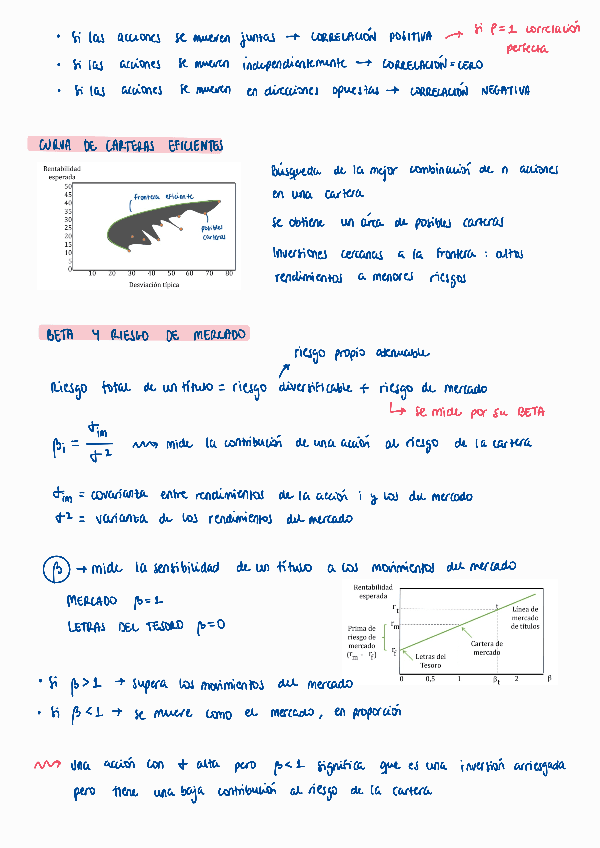 • Si las acciones se mueven juntas → CORRELACIÓN POSITIVA → Si ρ=1 correlación perfecta
• Si las acciones se mueven independientemente → CORRELACIÓN=CERO
• Si las acciones se mueven en direcciones opuestas → CORRELACIÓN NEGATIVA
CURVA DE CARTERAS EFICIENTES
Rentabilidad
esperada
50
45
40
35
30
25
20
15
10
5
0
frontera eficiente
posibles
carteras
10 20 30 40 50 60 70 80
Desviación típica
Búsqueda de la mejor combinación de n acciones
en una cartera
Se obtiene un área de posibles carteras
Inversiones cercanas a la frontera : altos
rendimientos a menores riesgos
BETA Y RIESGO DE MERCADO
riesgo propio atenuable
Riesgo total de un título = riesgo diversificable + riesgo de mercado
↳ Se mide por su BETA
βi = σim / σ² → mide la contribución de una acción al riesgo de la cartera
σim = covarianza entre rendimientos de la acción i y los del mercado
σ² = varianza de los rendimientos del mercado
β → mide la sensibilidad de un título a los movimientos del mercado
MERCADO β=1
LETRAS DEL TESORO β=0
Rentabilidad
esperada
Prima de
riesgo de
mercado
(rm - rf)
rt
rm
rf
t
Línea de
mercado
de títulos
Cartera de
mercado
Letras del
Tesoro
0 0,5 1 βt 2 β
• Si β>1 → supera los movimientos del mercado
• Si β<1 → se mueve como el mercado, en proporción
una acción con σ alta pero β<1 significa que es una inversión arriesgada
pero tiene una baja contribución al riesgo de la cartera